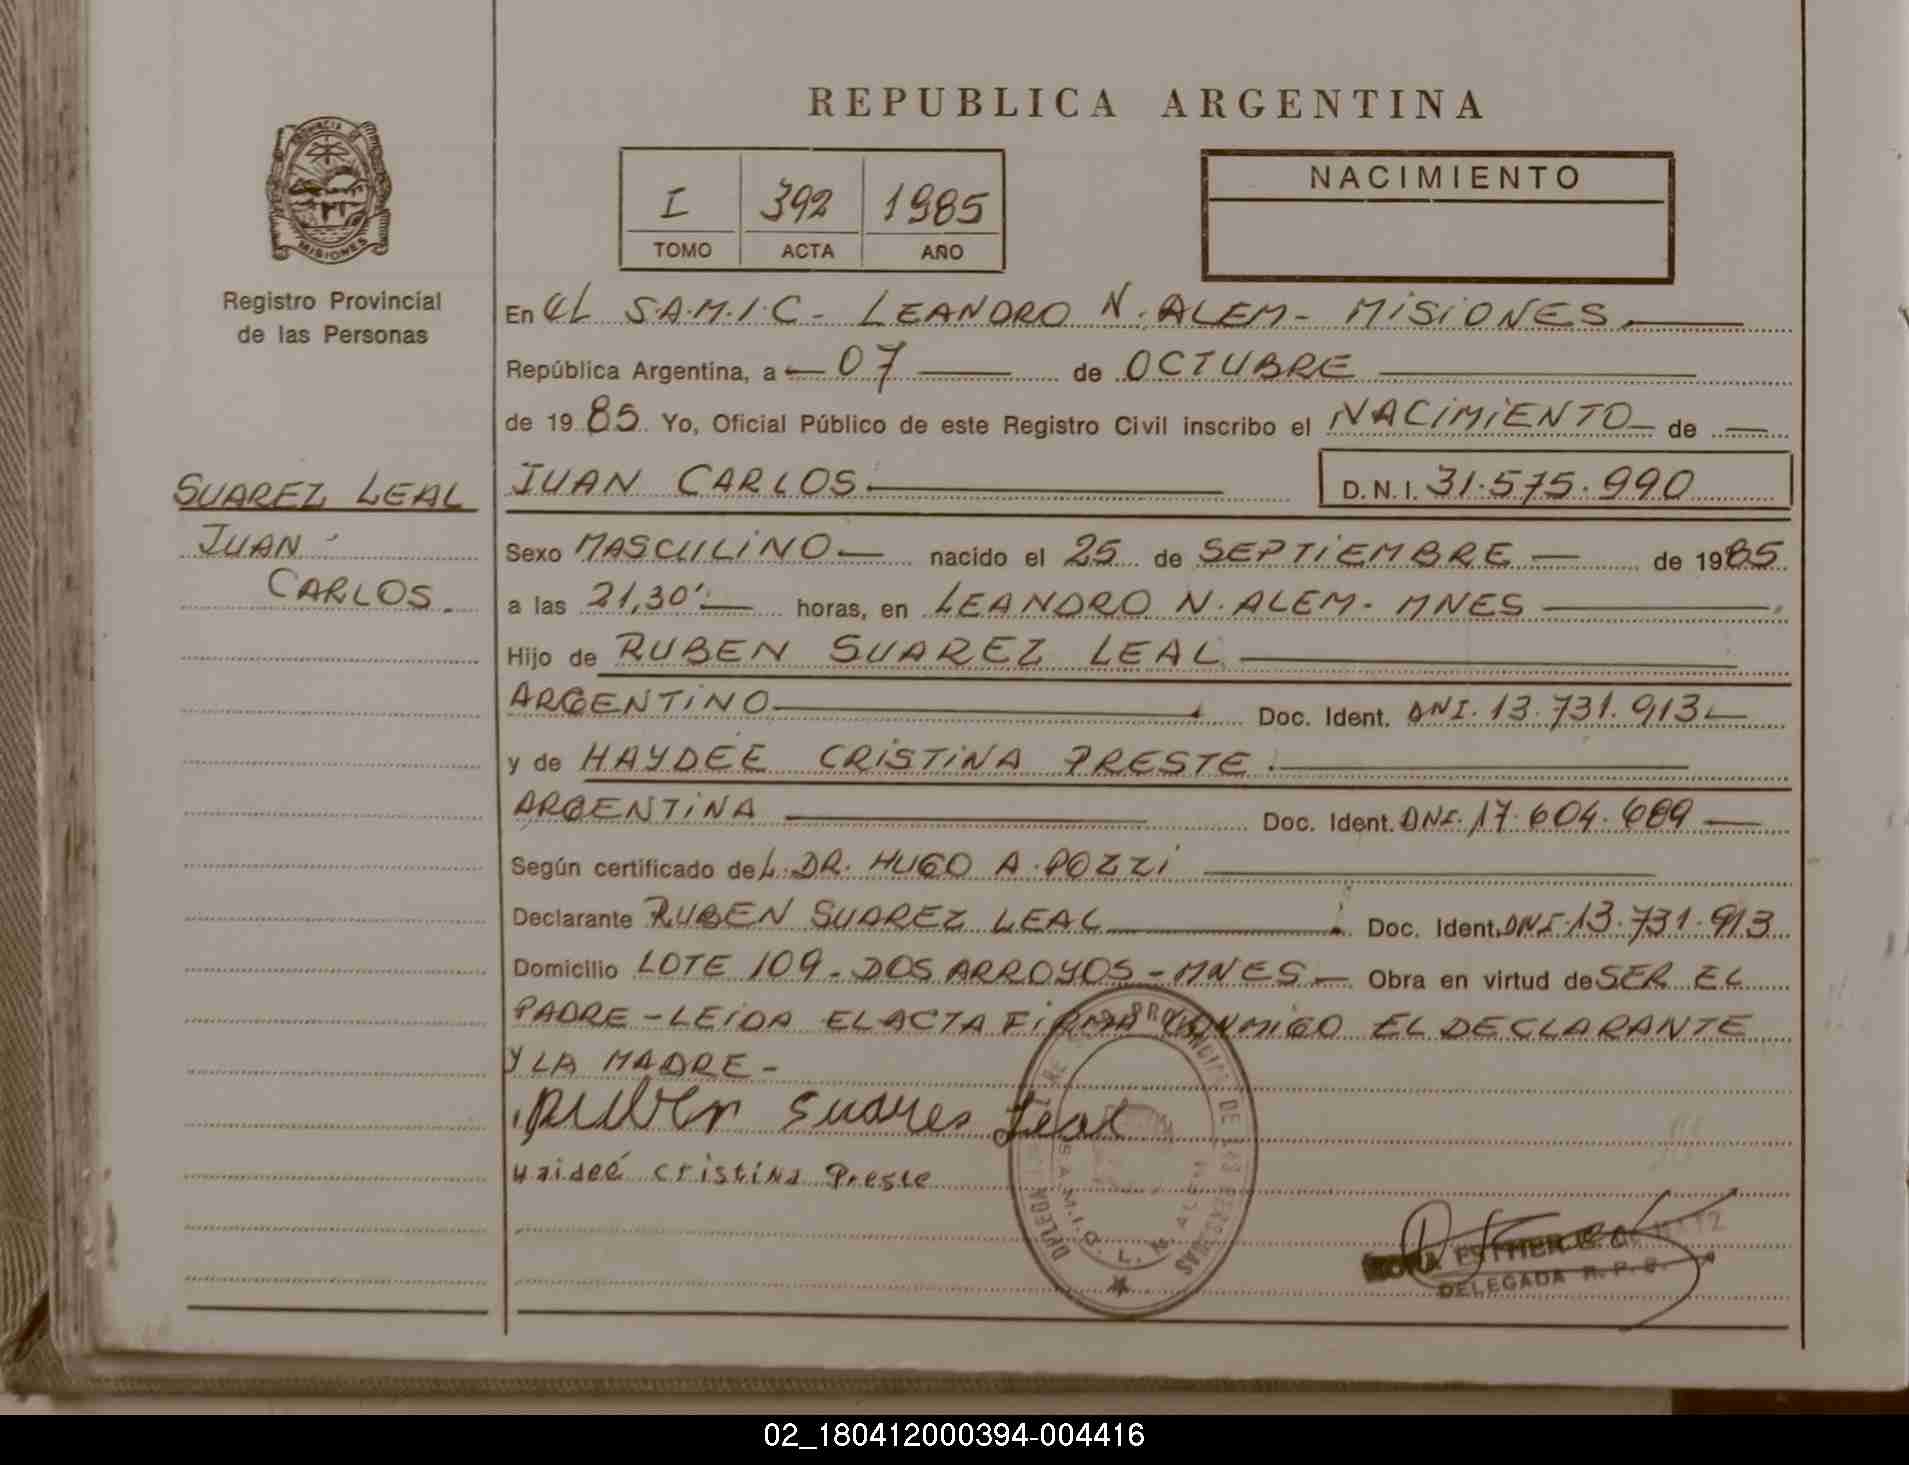 REPUBLICA ARGENTINA
PROVINCIA DE
MISIONES
Registro Provincial
de las Personas
I 392 1985
TOMO ACTA AÑO
NACIMIENTO
En EL S.A.M.I.C- LEANDRO N. ALEM- MISIONES.
República Argentina, a 07 de OCTUBRE
de 1985. Yo, Oficial Público de este Registro Civil inscribo el NACIMIENTO de
SUAREZ LEAL
JUAN
CARLOS.
JUAN CARLOS. D.N.I. 31.575.990
Sexo MASCULINO nacido el 25 de SEPTIEMBRE de 1985
a las 21,30' horas, en LEANDRO N. ALEM- MNES
Hijo de RUBEN SUAREZ LEAL
ARGENTINO Doc. Ident. DNI. 13.731.913
y de HAYDEE CRISTINA PRESTE.
ARGENTINA Doc. Ident. DNI. 17.604.689
Según certificado deL. DR. HUGO A. POZZI
Declarante RUBEN SUAREZ LEAL Doc. Ident. DNI 13.731.913
Domicilio LOTE 109 - DOS ARROYOS - MNES Obra en virtud de SER EL
PADRE - LEIDA EL ACTA FIRMA CONMIGO EL DECLARANTE
Y LA MADRE -
Ruben Suares Leal
Haideé Cristina Preste
PROVINCIAL DE LAS PERSONAS
S.A.M.I.C. L. N. ALEM
ESTHER
DELEGADA R. P. P.
02_180412000394-004416